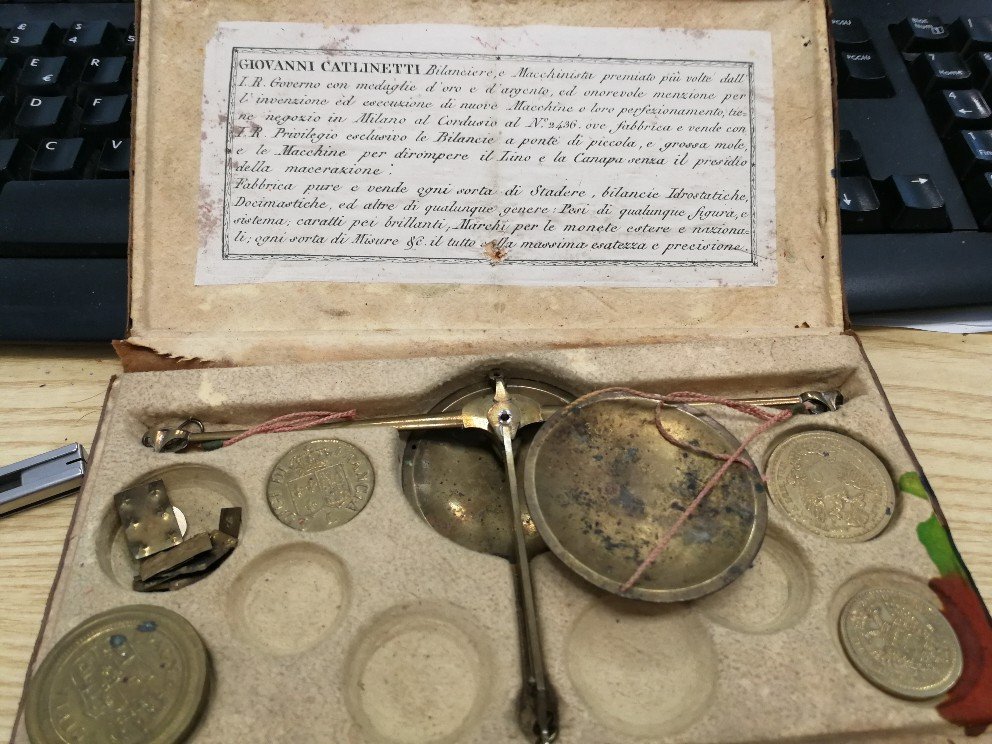 GIOVANNI CATLINETTI Bilanciere, e Macchinista premiato più volte dall'
I. R. Governo con medaglie d'oro e d'argento, ed onorevole menzione per
l'invenzione ed esecuzione di nuove Macchine o loro perfezionamento, tie-
ne negozio in Milano al Cordusio al N.° 2436. ove fabbrica e vende con
I. R. Privilegio esclusivo le Bilancie a ponte di piccola, e grossa mole,
e le Macchine per dirompere il Lino e la Canapa senza il presidio
della macerazione.
Fabbrica pure e vende ogni sorta di Stadere, bilancie Idrostatiche,
Docimastiche, ed altre di qualunque genere: Pesi di qualunque figura, e
sistema; caratti pei brillanti, Marchi per le monete estere e naziona-
li; ogni sorta di Misure &c. il tutto colla massima esatezza e precisione.
£
3
$
4
5
€
E
R
D
F
C
V
7
Home
4